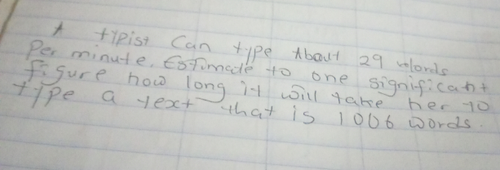 A typist can type About 29 words
Per minute. Estimade to one significant
figure how long it will take her to
type a text that is 1006 words.